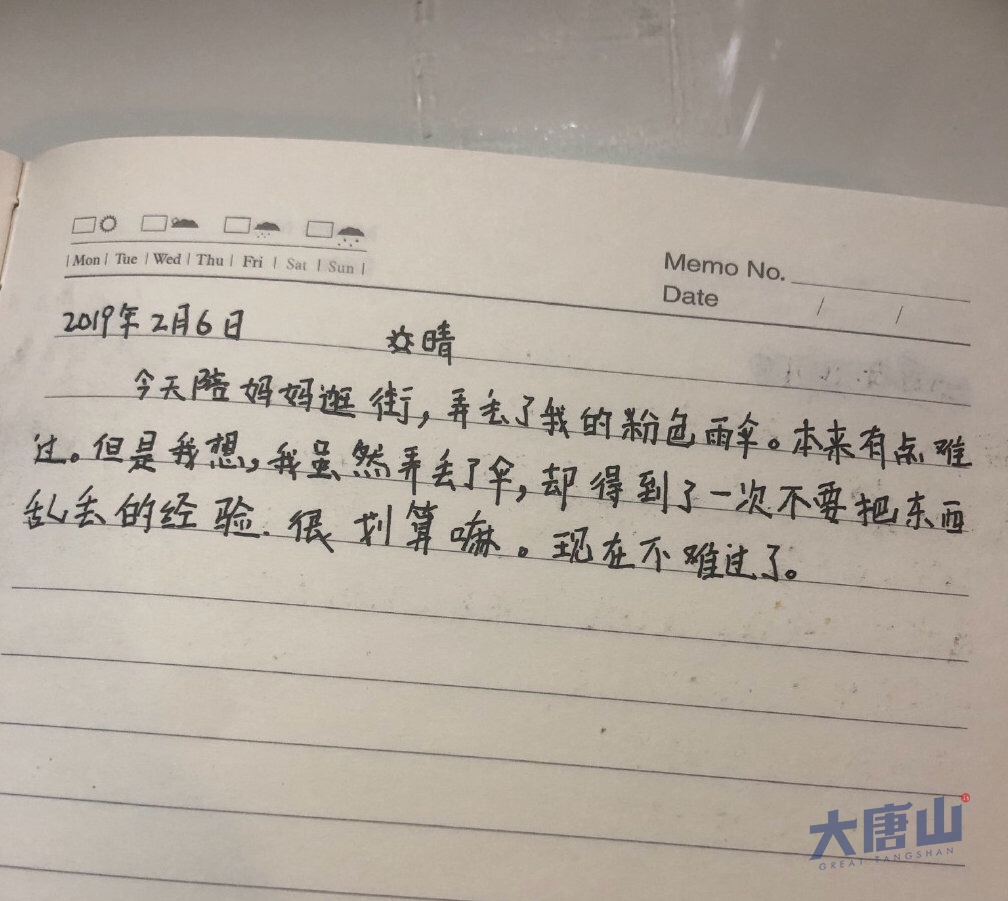 Mon Tue Wed Thu Fri Sat Sun
Memo No.
Date / /
2019年2月6日 晴
今天陪妈妈逛街，弄丢了我的粉色雨伞。本来有点难
过。但是我想，我虽然弄丢了伞，却得到了一次不要把东西
乱丢的经验.很划算嘛。现在不难过了。
大唐山
GREAT TANGSHAN